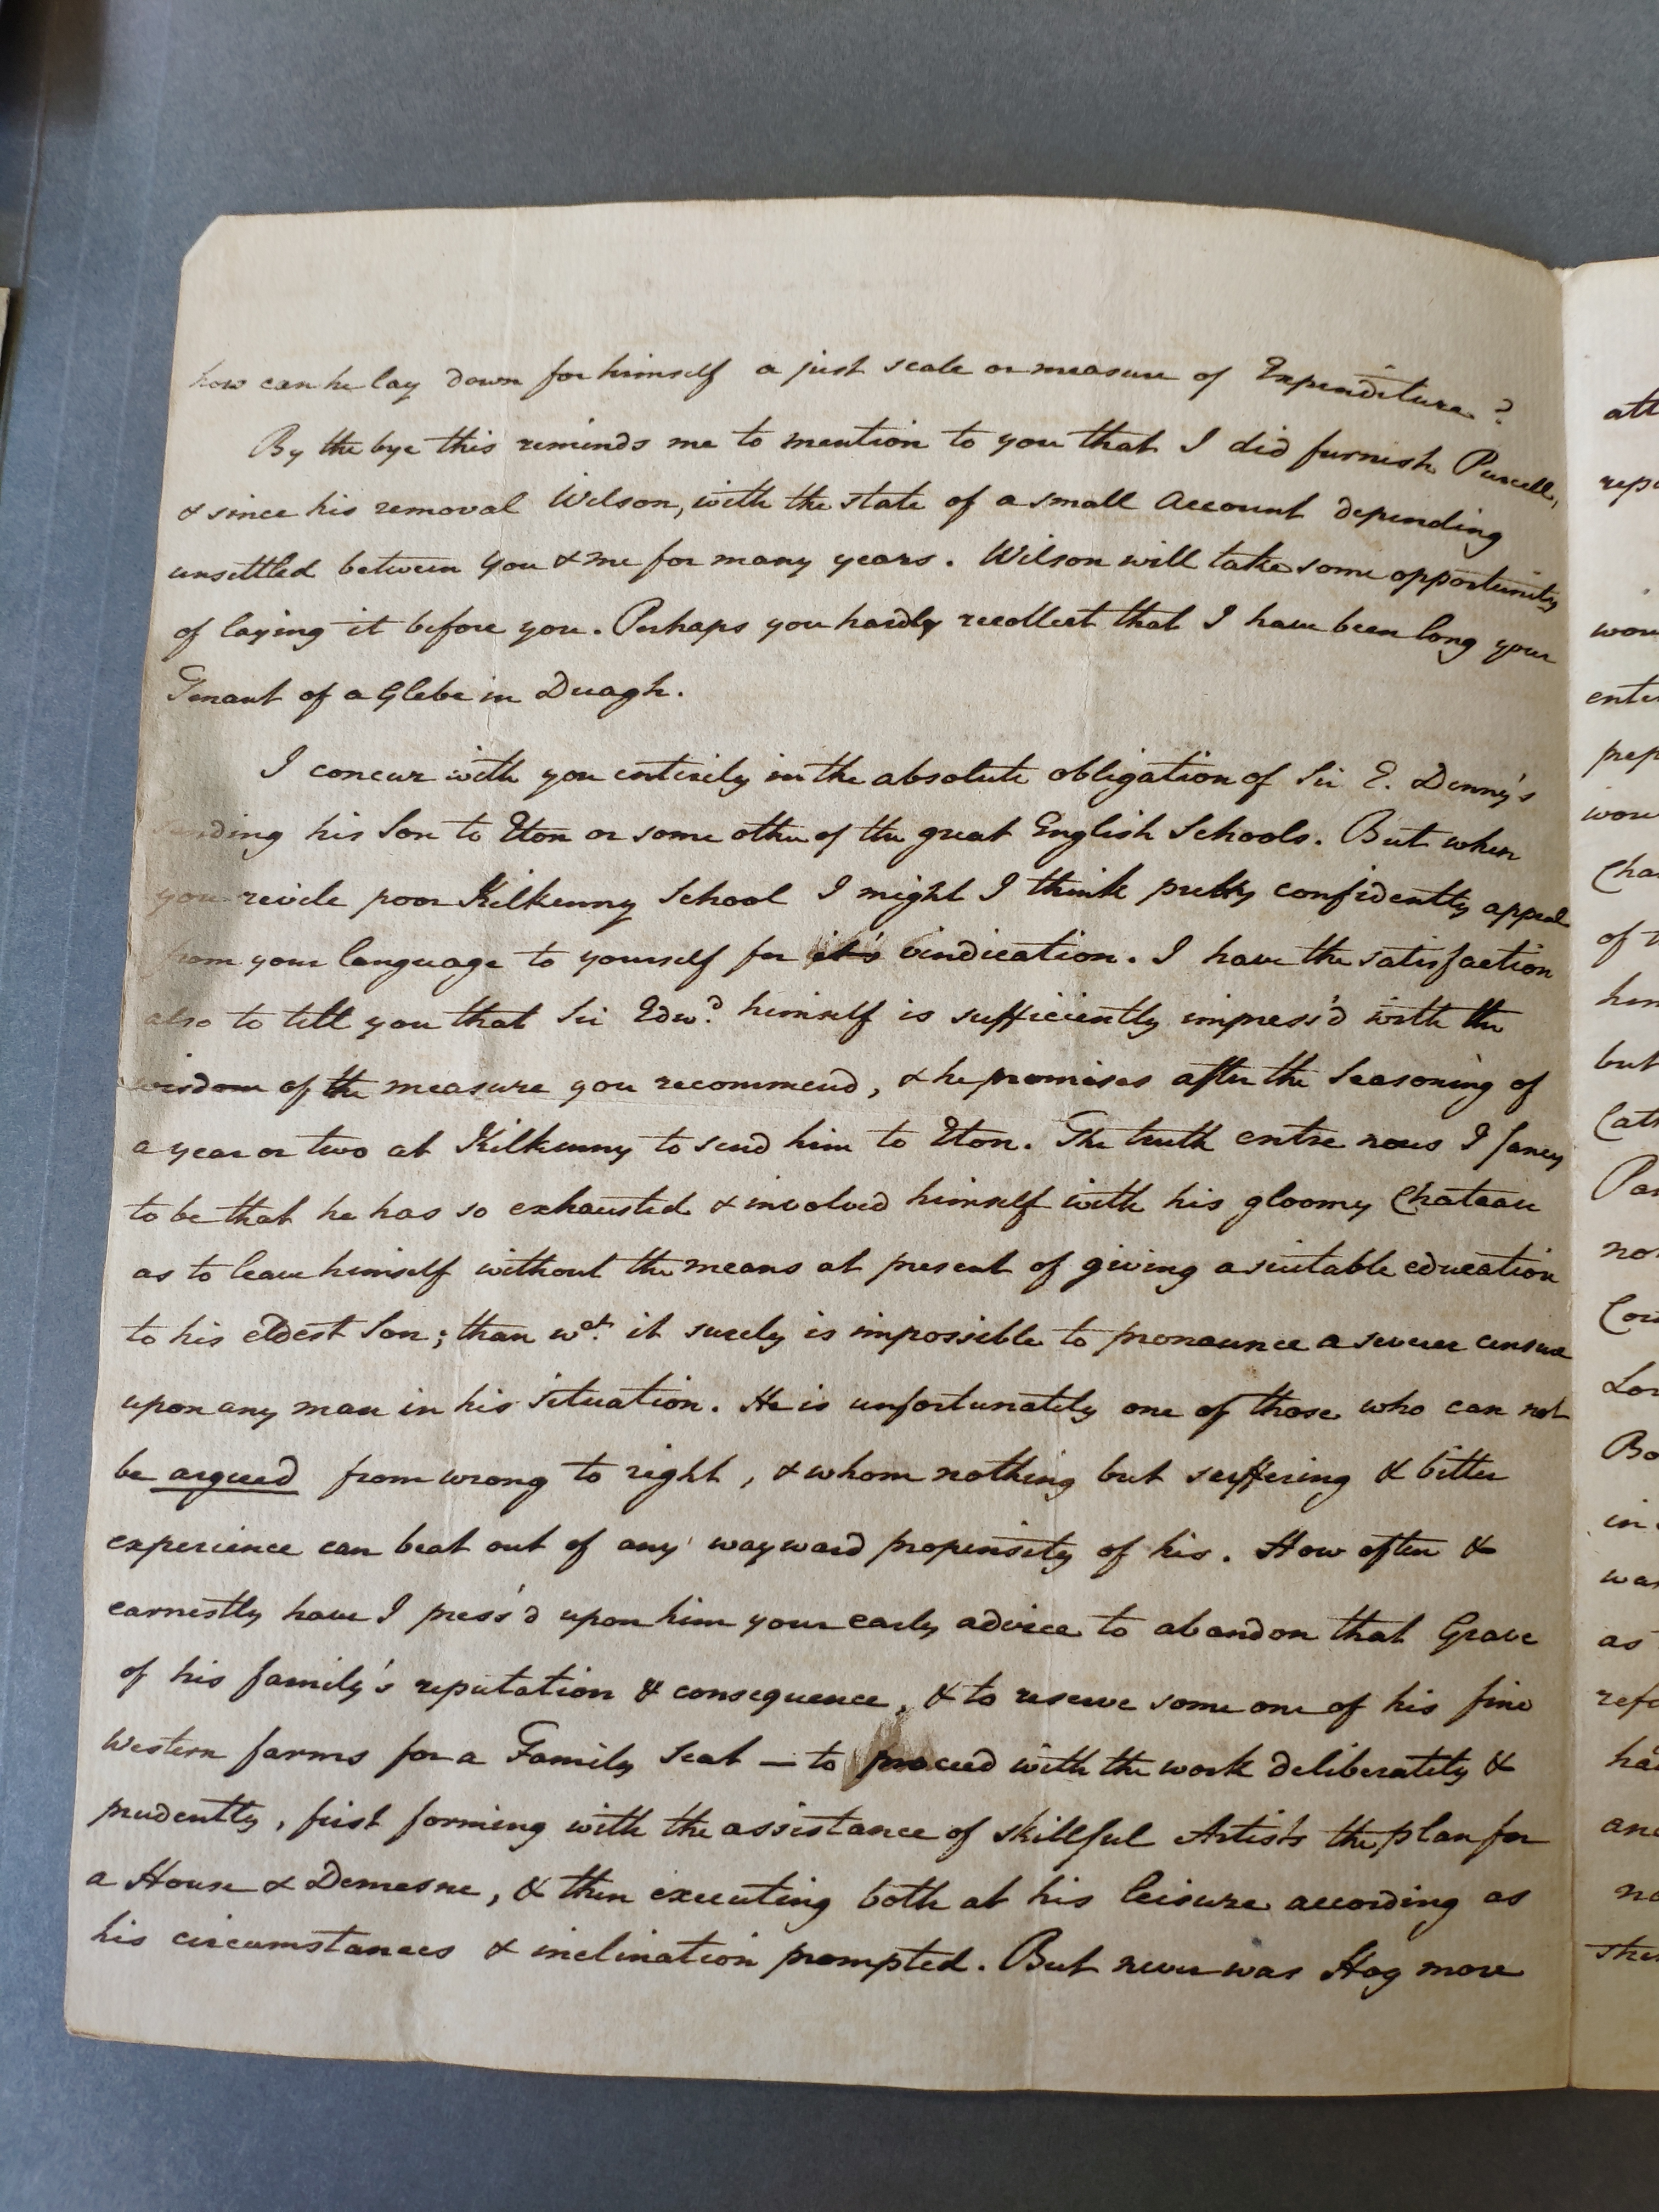 how can he lay down for himself a just scale or measure of Expenditure?
By the bye this reminds me to mention to you that I did furnish Purcell,
& since his removal Wilson, with the state of a small Account depending
unsettled between you & me for many years. Wilson will take some opportunity
of laying it before you. Perhaps you hardly recollect that I have been long your
Tenant of a Glebe in Duagh.
I concur with you entirely in the absolute obligation of Sir E. Denny's
sending his Son to Eton or some other of the great English Schools. But when
you revile poor Kilkenny School I might I think pretty confidently appeal
from your language to yourself for it's vindication. I have the satisfaction
also to tell you that Sir Edwd. himself is sufficiently impress'd with the
wisdom of the measure you recommend, & he promises after the Seasoning of
a year or two at Kilkenny to send him to Eton. The truth entre nous I fancy
to be that he has so exhausted & involved himself with his gloomy Chateau
as to leave himself without the means at present of giving a suitable education
to his eldest Son; than wch. it surely is impossible to pronounce a severer censure
upon any man in his situation. He is unfortunately one of those who can not
be argued from wrong to right, & whom nothing but suffering & bitter
experience can beat out of any wayward propensity of his. How often &
earnestly have I press'd upon him your early advice to abandon that Grave
of his family's reputation & consequence, & to reserve some one of his fine
Western farms for a Family Seat — to proceed with the work deliberately &
prudently, first forming with the assistance of skillful Artists the plan for
a House & Demesne, & then executing both at his leisure according as
his circumstances & inclination prompted. But never was Hog more